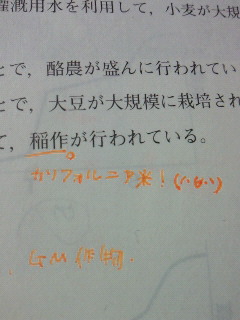 灌漑用水を利用して，小麦が大規
とで，酪農が盛んに行われてい
とで，大豆が大規模に栽培され
て，稲作が行われている。
カリフォルニア米！
GM作物.